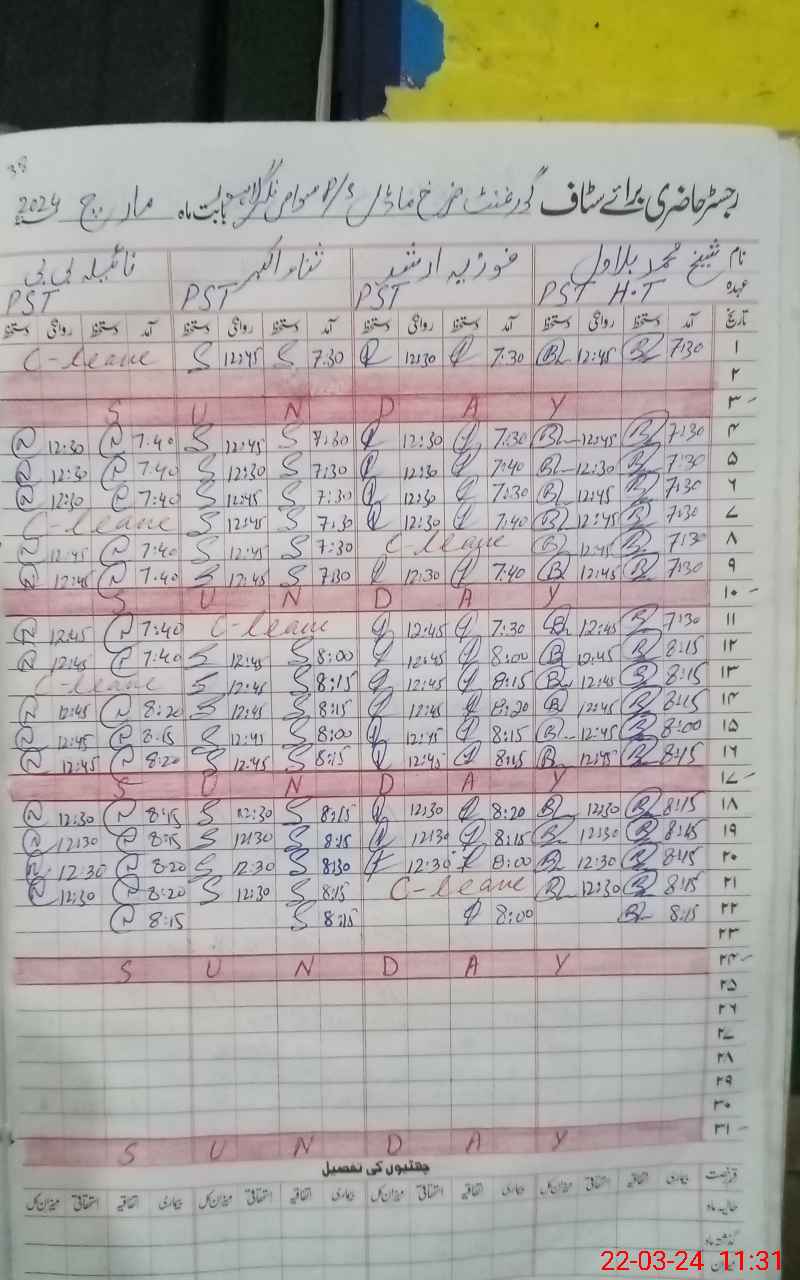 38
رجسٹر حاضری برائے سٹاف گورنمنٹ ماڈل P/S بابت ماہ مارچ 2024
نام شیخ محمد بلاول فوزیہ ارشد ثناء اکبر نائیلہ بی بی
عہدہ PST H.T PST PST PST
تاریخ آمد دستخط روانگی دستخط آمد دستخط روانگی دستخط آمد دستخط روانگی دستخط آمد دستخط روانگی دستخط
۱ 7:30 12:45 7:30 12:30 7:30 12:45 C-leave
۲
۳ S U N D A Y
۴ 7:30 12:45 7:30 12:30 7:30 12:45 7:40 12:30
۵ 7:30 12:30 7:40 12:30 7:30 12:30 7:40 12:30
۶ 7:30 12:45 7:30 12:30 7:30 12:45 7:40 12:30
۷ 7:30 12:45 7:40 12:30 7:30 12:45 C-leave
۸ 7:30 12:45 C-leave 7:30 12:45 7:40 12:45
۹ 7:30 12:45 7:40 12:30 7:30 12:45 7:40 12:45
۱۰ S U N D A Y
۱۱ 7:30 12:45 7:30 12:45 C-leave 7:40 12:45
۱۲ 8:15 12:45 8:00 12:45 8:00 12:45 7:40 12:45
۱۳ 8:15 12:45 8:15 12:45 8:15 12:45 C-leave
۱۴ 8:15 12:45 8:20 12:45 8:15 12:45 8:20 12:45
۱۵ 8:00 12:45 8:15 12:45 8:00 12:45 8:15 12:45
۱۶ 8:15 12:45 8:15 12:45 8:15 12:45 8:20 12:45
۱۷ S U N D A Y
۱۸ 8:15 12:30 8:20 12:30 8:15 12:30 8:15 12:30
۱۹ 8:15 12:30 8:15 12:30 8:15 12:30 8:15 12:30
۲۰ 8:15 12:30 8:00 12:30 8:30 12:30 8:20 12:30
۲۱ 8:15 12:30 C-leave 8:15 12:30 8:20 12:30
۲۲ 8:15 8:00 8:15 8:15
۲۳
۲۴ S U N D A Y
۲۵
۲۶
۲۷
۲۸
۲۹
۳۰
۳۱ S U N D A Y
چھٹیوں کی تفصیل
قسم رخصت بیماری اتفاقیہ استحقاقی میزان کل بیماری اتفاقیہ استحقاقی میزان کل بیماری اتفاقیہ استحقاقی میزان کل بیماری اتفاقیہ استحقاقی میزان کل
حالیہ ماہ
گذشتہ ماہ
میزان
22-03-24 11:31